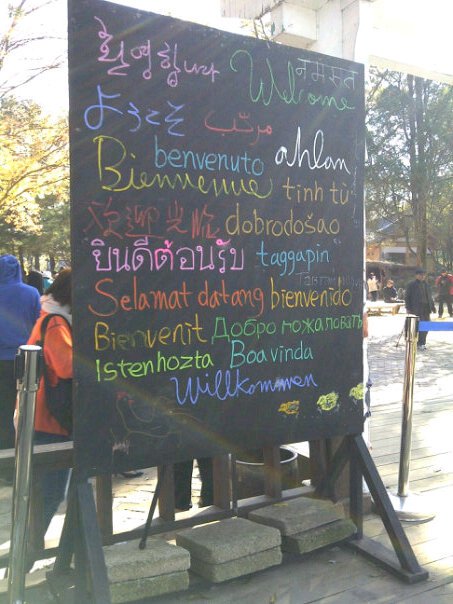 환영합니다 नमस्त
Welcome
ようこそ مرحب
benvenuto ahlan
Bienvenue tinh tù
欢迎光临 dobrodošao
ยินดีต้อนรับ taggapin
Selamat datang bienvenido
Bienvenit Добро пожаловать
Istenhozta Boavinda
Willkommen